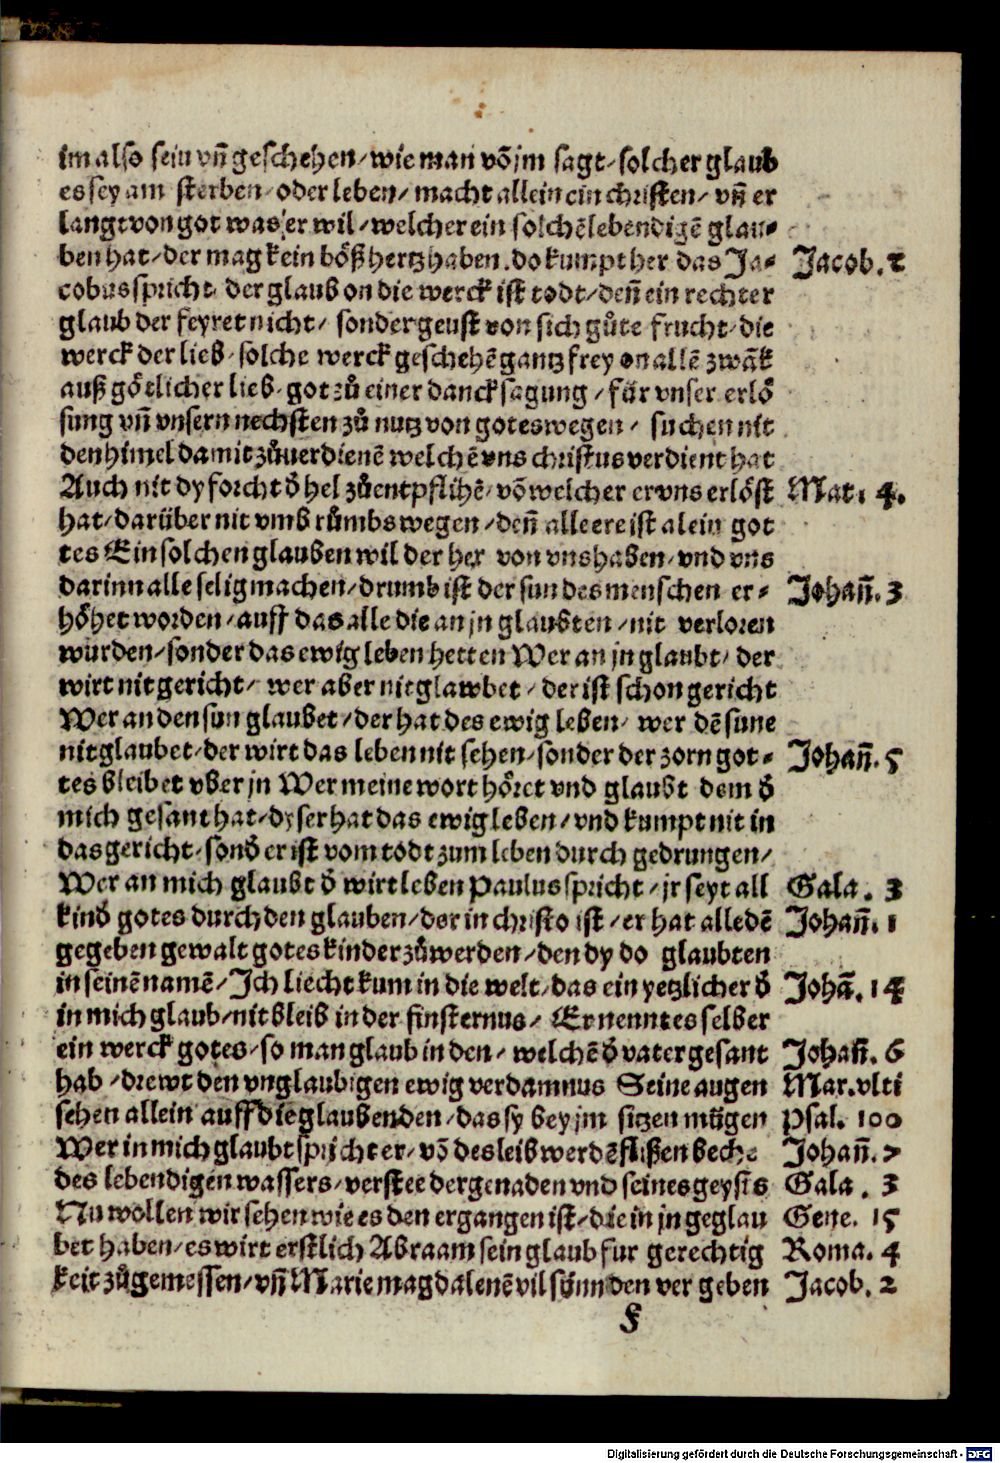 im also sein vñ geschehen/ wie man võ jm sagt/ solcher glaub
es sey am sterben/ oder leben/ macht allein ein christen/ vñ er
langt von got was er wil/ welcher ein solchẽ lebendigẽ glau⸗
ben hat/ der mag kein bößz hertz haben. do kumpt her das Ja⸗ Jacob. 2
cobus spricht/ der glaub on die werck ist todt/ deñ ein rechter
glaub der feyret nicht/ sonder geust von sich gůte frucht/ die
werck der lieb/ solche werck geschehẽ gantz frey on allẽ zwãk
auß götlicher lieb/ got zů einer dancksagung/ für vnser erlö
sung vñ vnsern nechsten zů nutz von gotes wegen/ suchen nit
den himel damit zůuerdienẽ welchẽ vns christus verdient hat
Auch nit dy forcht d̕ hel zů entpflihẽ/ võ welcher er vns erlöst Mat. 4.
hat/ darüber nit vmb růmbs wegen/ deñ alle ere ist alein got
tes Ein solchen glauben wil der her von vns haben/ vnd vns
darinn alle selig machen/ drumb ist der sun des menschen er⸗ Johañ. 3
höhet worden/ auff das alle die an jn glaubten/ nit verloren
wurden/ sonder das ewig leben hetten Wer an jn glaubt/ der
wirt nit gericht/ wer aber nit glawbet/ der ist schon gericht
Wer an den sun glaubet/ der hat des ewig leben/ wer dẽ sune
nit glaubet/ der wirt das leben nit sehen/ sonder der zorn got⸗ Johañ. 5
tes bleibet vber jn Wer meine wort höret vnd glaubt dem d̕
mich gesant hat/ dyser hat das ewig leben/ vnd kumpt nit in
das gericht/ sond̕ er ist vom todt zum leben durch gedrungen/
Wer an mich glaubt d̕ wirt leben Paulus spricht/ jr seyt all Gala. 3
kind̕ gotes durch den glauben/ der in christo ist/ er hat alle dẽ Johañ. 1
gegeben gewalt gotes kinder zů werden/ den dy do glaubten
in seinẽ namẽ/ Ich liecht kum in die welt/ das ein yetzlicher d̕ Johã. 14
in mich glaub/ nit bleib in der finsternus/ Er nennt es selber
ein werck gotes/ so man glaub in den/ welchẽ d̕ vater gesant Johañ. 6
hab/ drewt den vnglaubigen ewig verdamnus Seine augen Mar. vlti
sehen allein auff die glaubenden/ das sy bey jm sitzen mügen Psal. 100
Wer in mich glaubt spricht er/ võ des leib werdẽ flißen beche Johañ. 7
des lebendigen wassers/ verstee der genaden vnd seines geysts Gala. 3
Nu wöllen wir sehen wie es den ergangen ist/ die in jn geglau Gene. 15
bet haben/ es wirt erstlich Abraam sein glaub fur gerechtig Roma. 4
keit zůgemessen/ vñ Marie magdalenẽ vil sünnden ver geben Jacob. 2
F
Digitalisierung gefördert durch die Deutsche Forschungsgemeinschaft - DFG